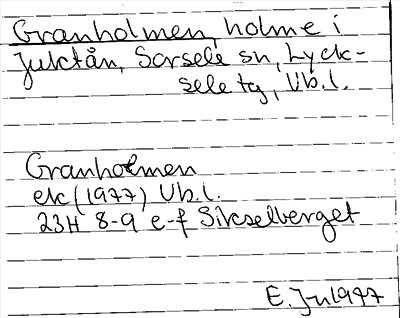 Granholmen, holme i
Juktån, Sorsele sn, Lyck-
sele tg, Vb.l.
Granholmen
ek (1977) Vb.l.
23H 8-9 e-f Sikselberget
E. Ju 1977